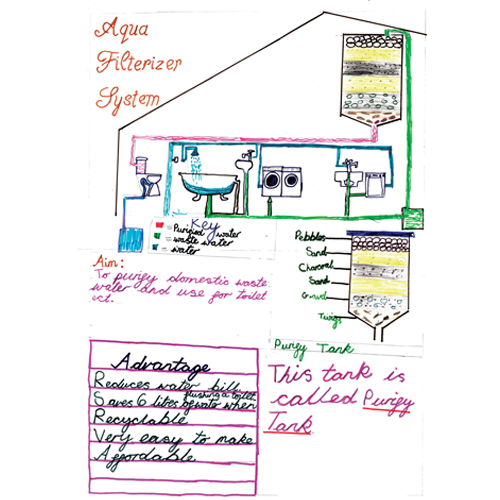 Aqua
Filterizer
System
Key
= Purified water
= waste water
= water
Aim:
To purify domestic waste
water and use for toilet
ect.
Pebbles
Sand
Charcoal
Sand
Gravel
Twigs
Purify Tank
Advantage
Reduces water bill
Saves 6 litres of water when flushing a toilet
Recyclable
Very easy to make
Affordable
This tank is
called Purify
Tank